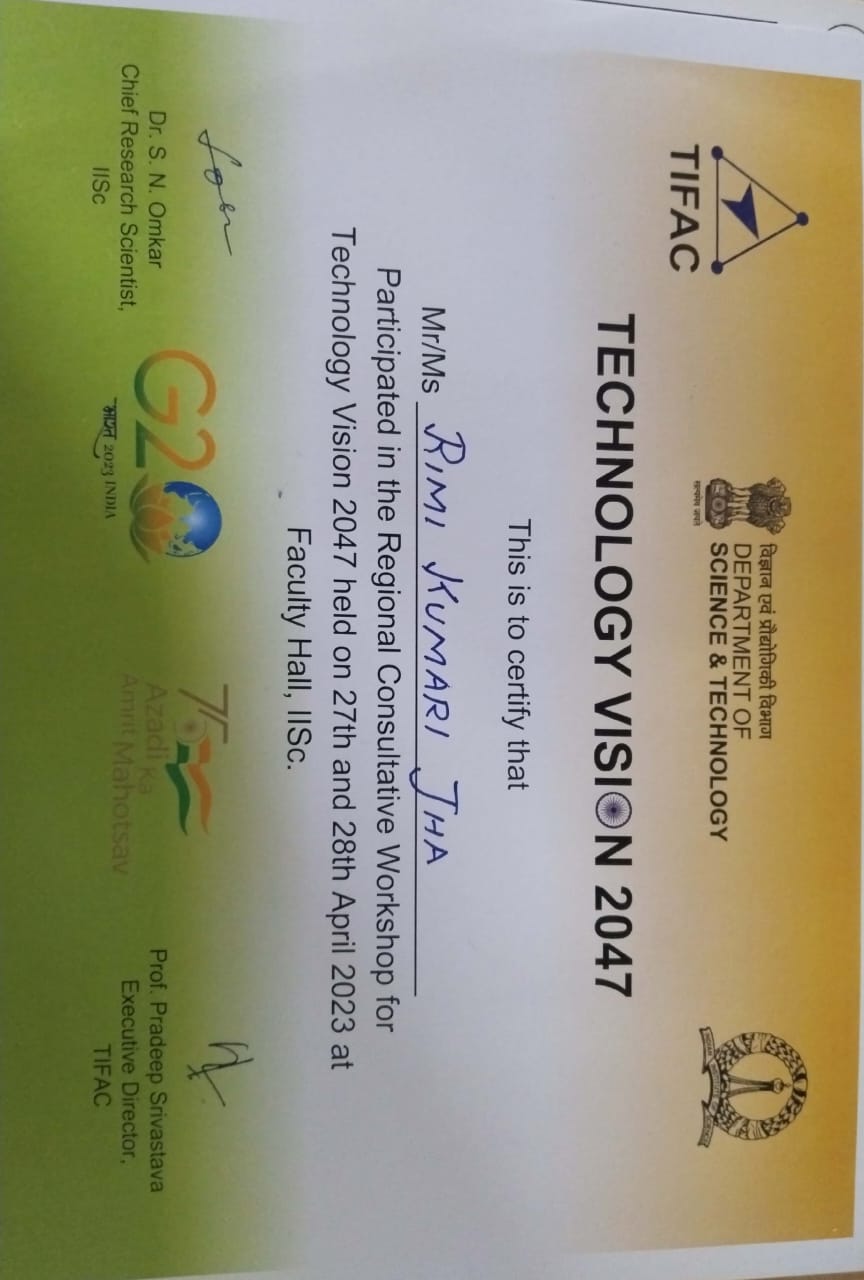 TIFAC
विज्ञान एवं प्रौद्योगिकी विभाग
DEPARTMENT OF
SCIENCE & TECHNOLOGY
सत्यमेव जयते
INDIAN INSTITUTE OF SCIENCE
TECHNOLOGY VISION 2047
This is to certify that
Mr/Ms RIMI KUMARI JHA
Participated in the Regional Consultative Workshop for
Technology Vision 2047 held on 27th and 28th April 2023 at
Faculty Hall, IISc.
Dr. S. N. Omkar
Chief Research Scientist,
IISc
G20
भारत 2023 INDIA
75
Azadi Ka
Amrit Mahotsav
Prof. Pradeep Srivastava
Executive Director,
TIFAC